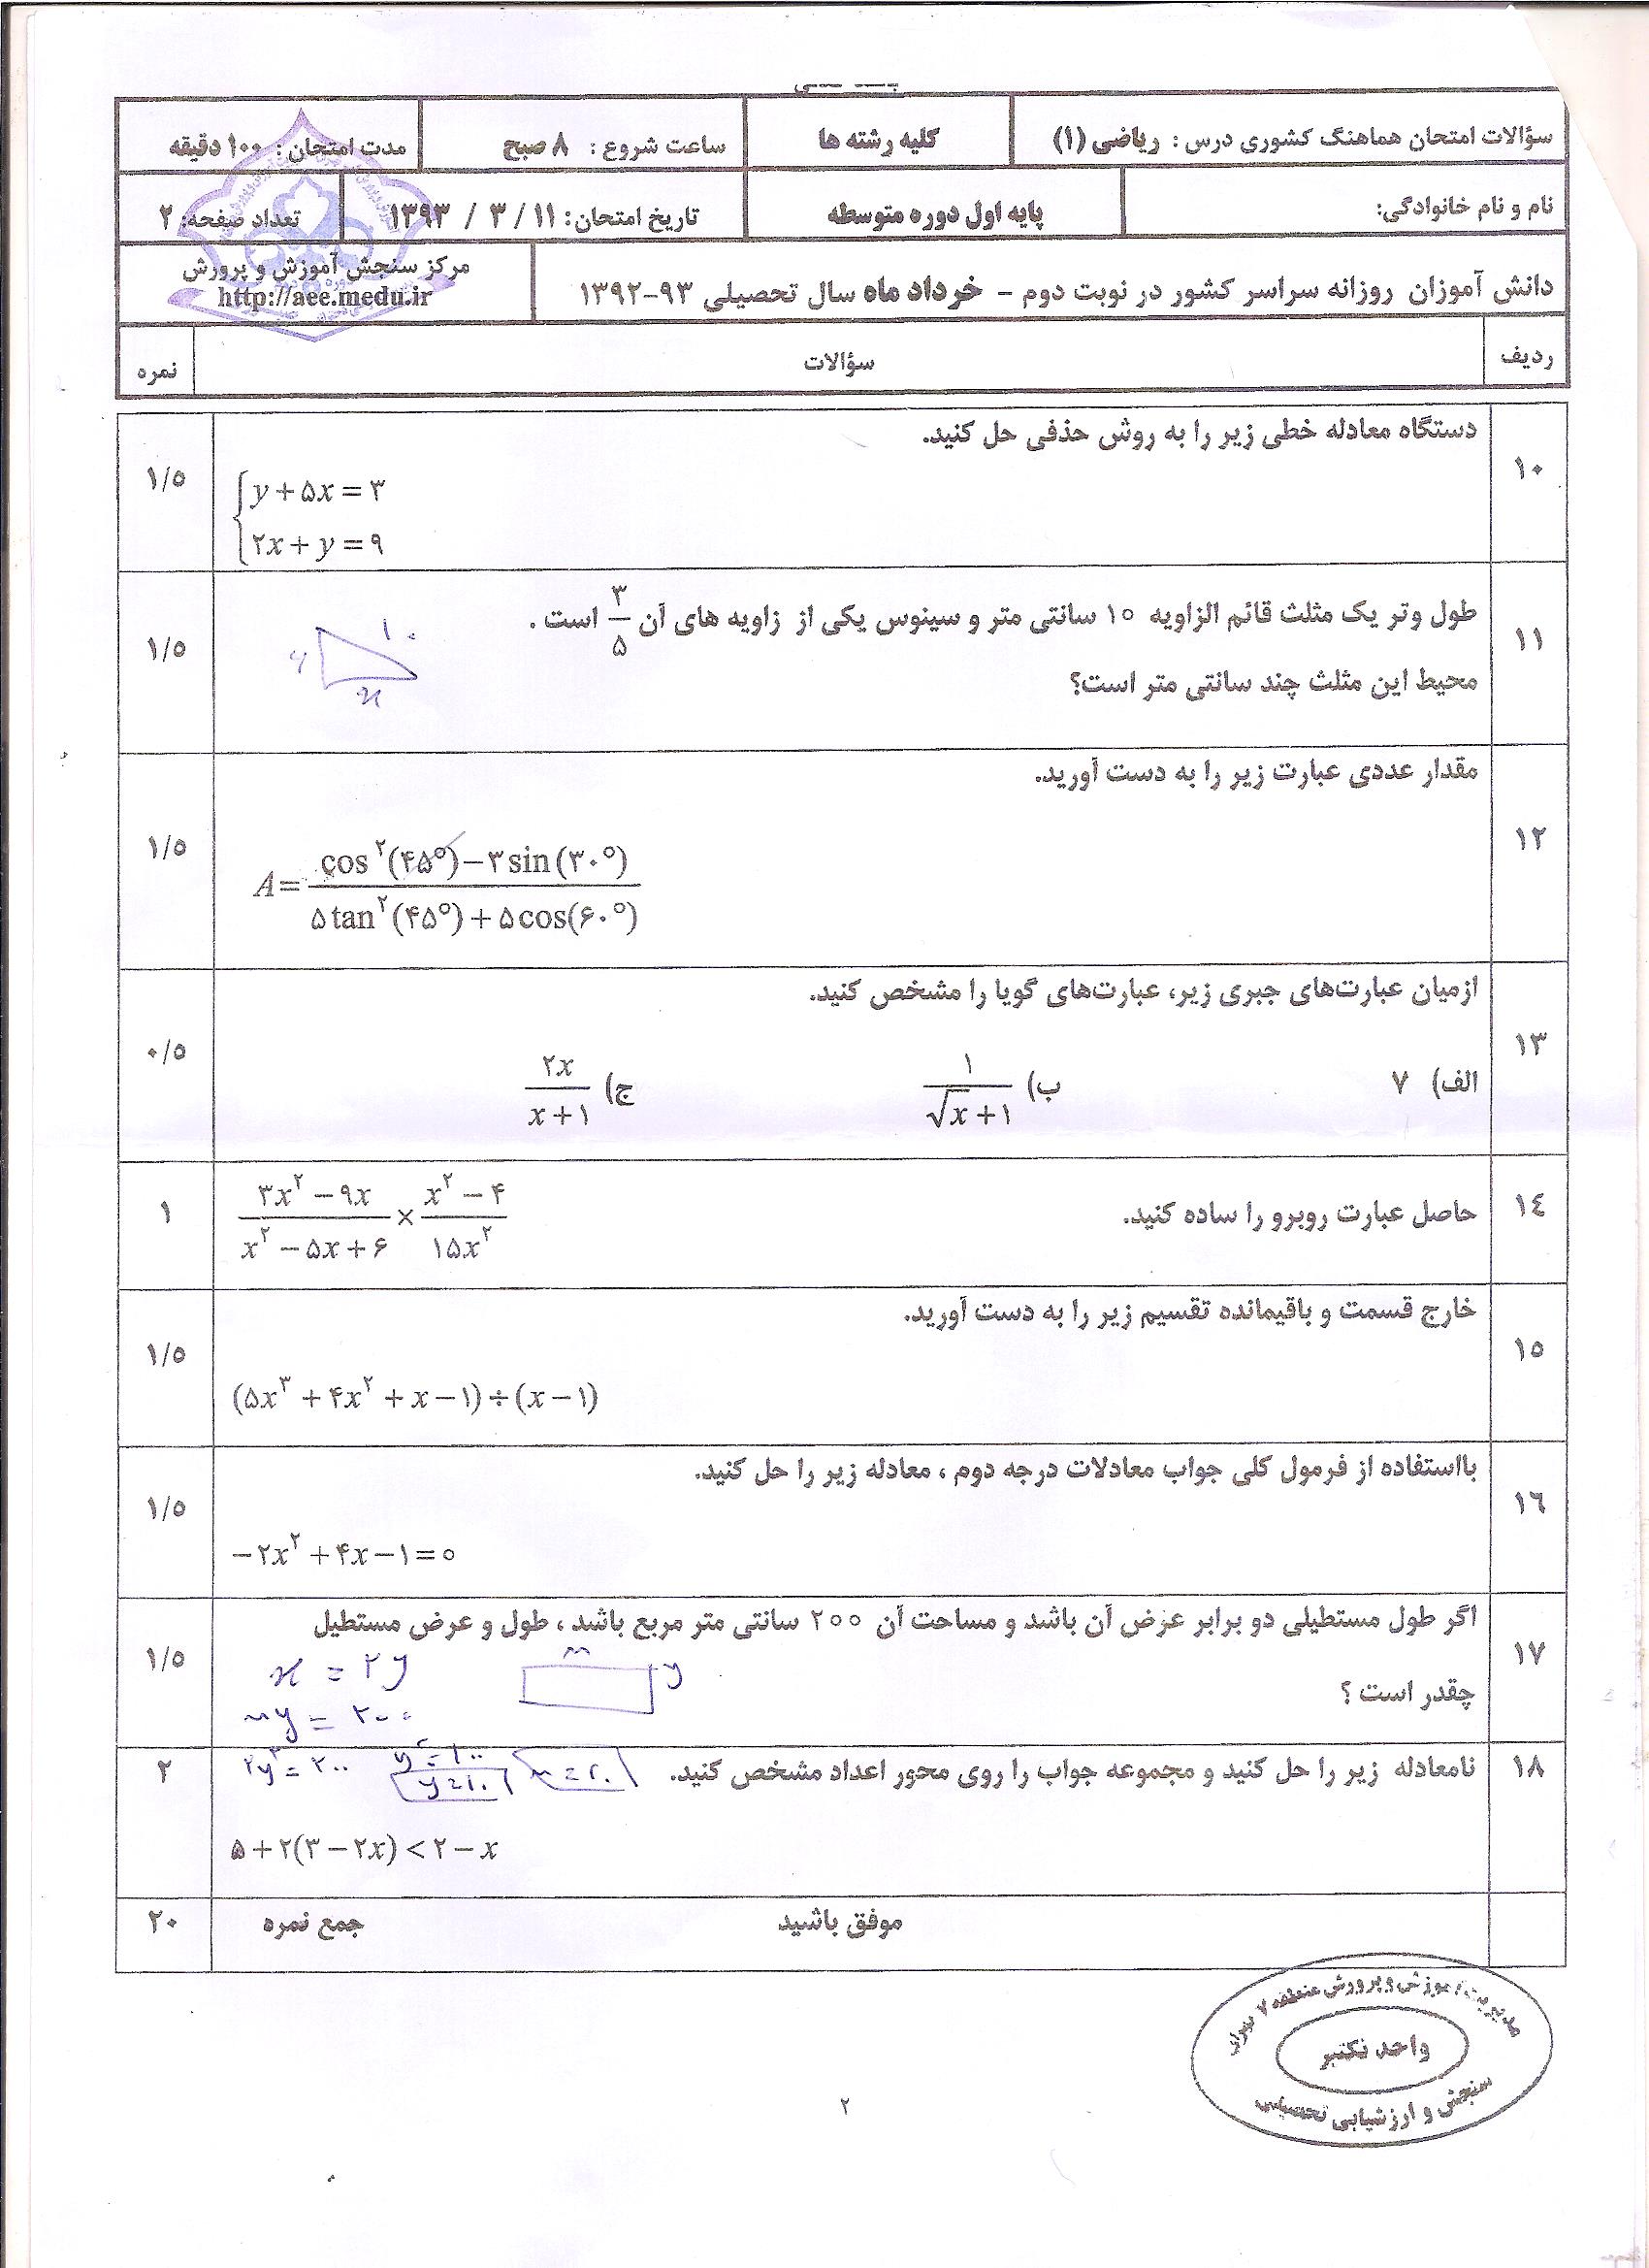 سؤالات امتحان هماهنگ کشوری درس : ریاضی (۱) کلیه رشته ها ساعت شروع : ۸ صبح مدت امتحان : ۱۰۰ دقیقه
نام و نام خانوادگی: پایه اول دوره متوسطه تاریخ امتحان: ۱۱ / ۳ / ۱۳۹۳ تعداد صفحه: ۲
دانش آموزان روزانه سراسر کشور در نوبت دوم – خرداد ماه سال تحصیلی ۹۳-۱۳۹۲ مرکز سنجش آموزش و پرورش
http://aee.medu.ir
ردیف سؤالات نمره
۱۰ دستگاه معادله خطی زیر را به روش حذفی حل کنید. ۱/۵
y + ۵x = ۳
۲x + y = ۹
۱۱ طول وتر یک مثلث قائم الزاویه ۱۰ سانتی متر و سینوس یکی از زاویه های آن ۳/۵ است . ۱/۵
محیط این مثلث چند سانتی متر است؟
۱۰
x
۱۲ مقدار عددی عبارت زیر را به دست آورید. ۱/۵
A = (cos²(۴۵°) − ۳ sin(۳۰°)) / (۵ tan²(۴۵°) + ۵ cos(۶۰°))
۱۳ ازمیان عبارت‌های جبری زیر، عبارت‌های گویا را مشخص کنید. ۰/۵
الف) ۷ ب) ۱ / (√x + ۱) ج) ۲x / (x + ۱)
۱۴ حاصل عبارت روبرو را ساده کنید. (۳x² − ۹x) / (x² − ۵x + ۶) × (x² − ۴) / (۱۵x²) ۱
۱۵ خارج قسمت و باقیمانده تقسیم زیر را به دست آورید. ۱/۵
(۵x³ + ۴x² + x − ۱) ÷ (x − ۱)
۱۶ بااستفاده از فرمول کلی جواب معادلات درجه دوم ، معادله زیر را حل کنید. ۱/۵
−۲x² + ۴x − ۱ = ۰
۱۷ اگر طول مستطیلی دو برابر عرض آن باشد و مساحت آن ۲۰۰ سانتی متر مربع باشد ، طول و عرض مستطیل ۱/۵
چقدر است ؟
x y
x = ۲y
xy = ۲۰۰
۲y² = ۲۰۰ y² = ۱۰۰ y = ۱۰ x = ۲۰
۱۸ نامعادله زیر را حل کنید و مجموعه جواب را روی محور اعداد مشخص کنید. ۲
۵ + ۲(۳ − ۲x) < ۲ − x
موفق باشید جمع نمره ۲۰
مدیریت آموزش و پرورش منطقه ۷ تهران
واحد تکثیر
سنجش و ارزشیابی تحصیلی
۲